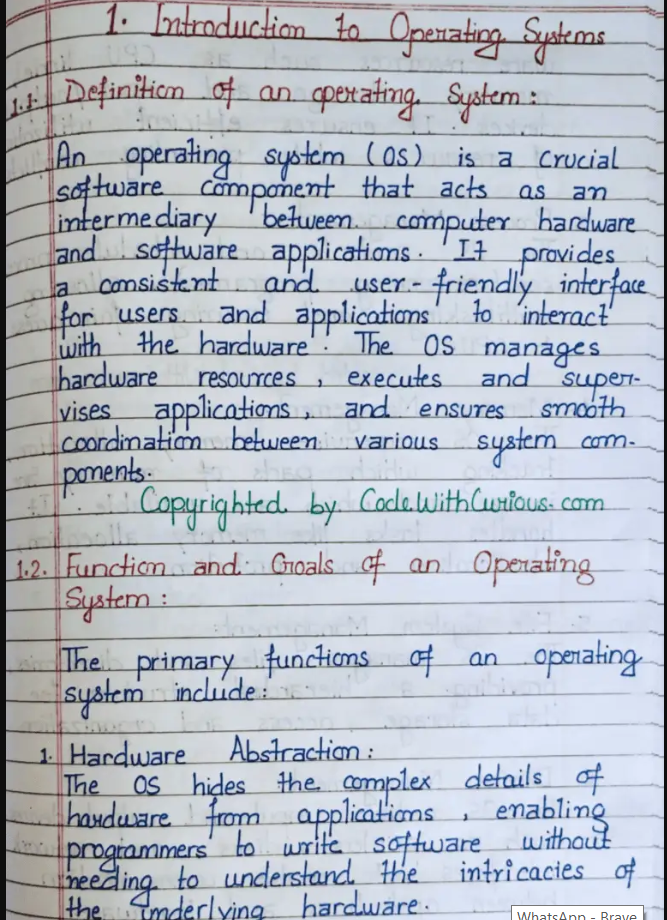 1. Introduction to Operating Systems
1.1. Definition of an operating System :
An operating system (OS) is a crucial
software component that acts as an
intermediary between computer hardware
and software applications. It provides
a consistent and user-friendly interface
for users and applications to interact
with the hardware. The OS manages
hardware resources, executes and super-
vises applications, and ensures smooth
coordination between various system com-
ponents.
Copyrighted by CodeWithCurious.com
1.2. Function and Goals of an Operating
System :
The primary functions of an operating
system include:
1. Hardware Abstraction:
The OS hides the complex details of
hardware from applications, enabling
programmers to write software without
needing to understand the intricacies of
the underlying hardware.
WhatsApp - Brave